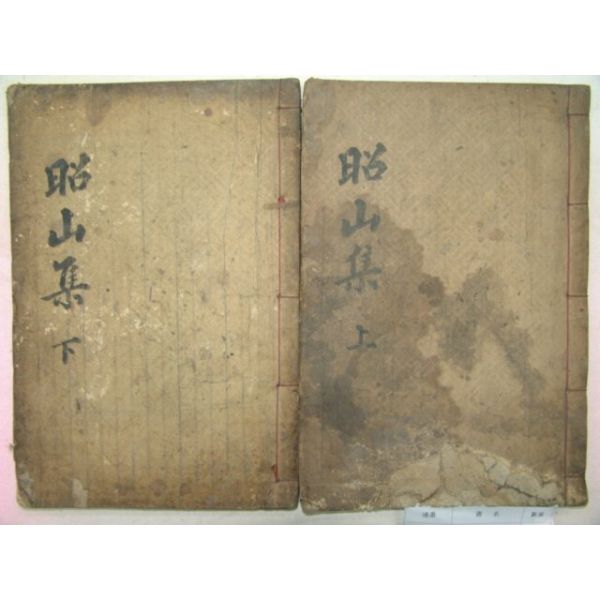 昭山集 上
昭山集 下
書 名